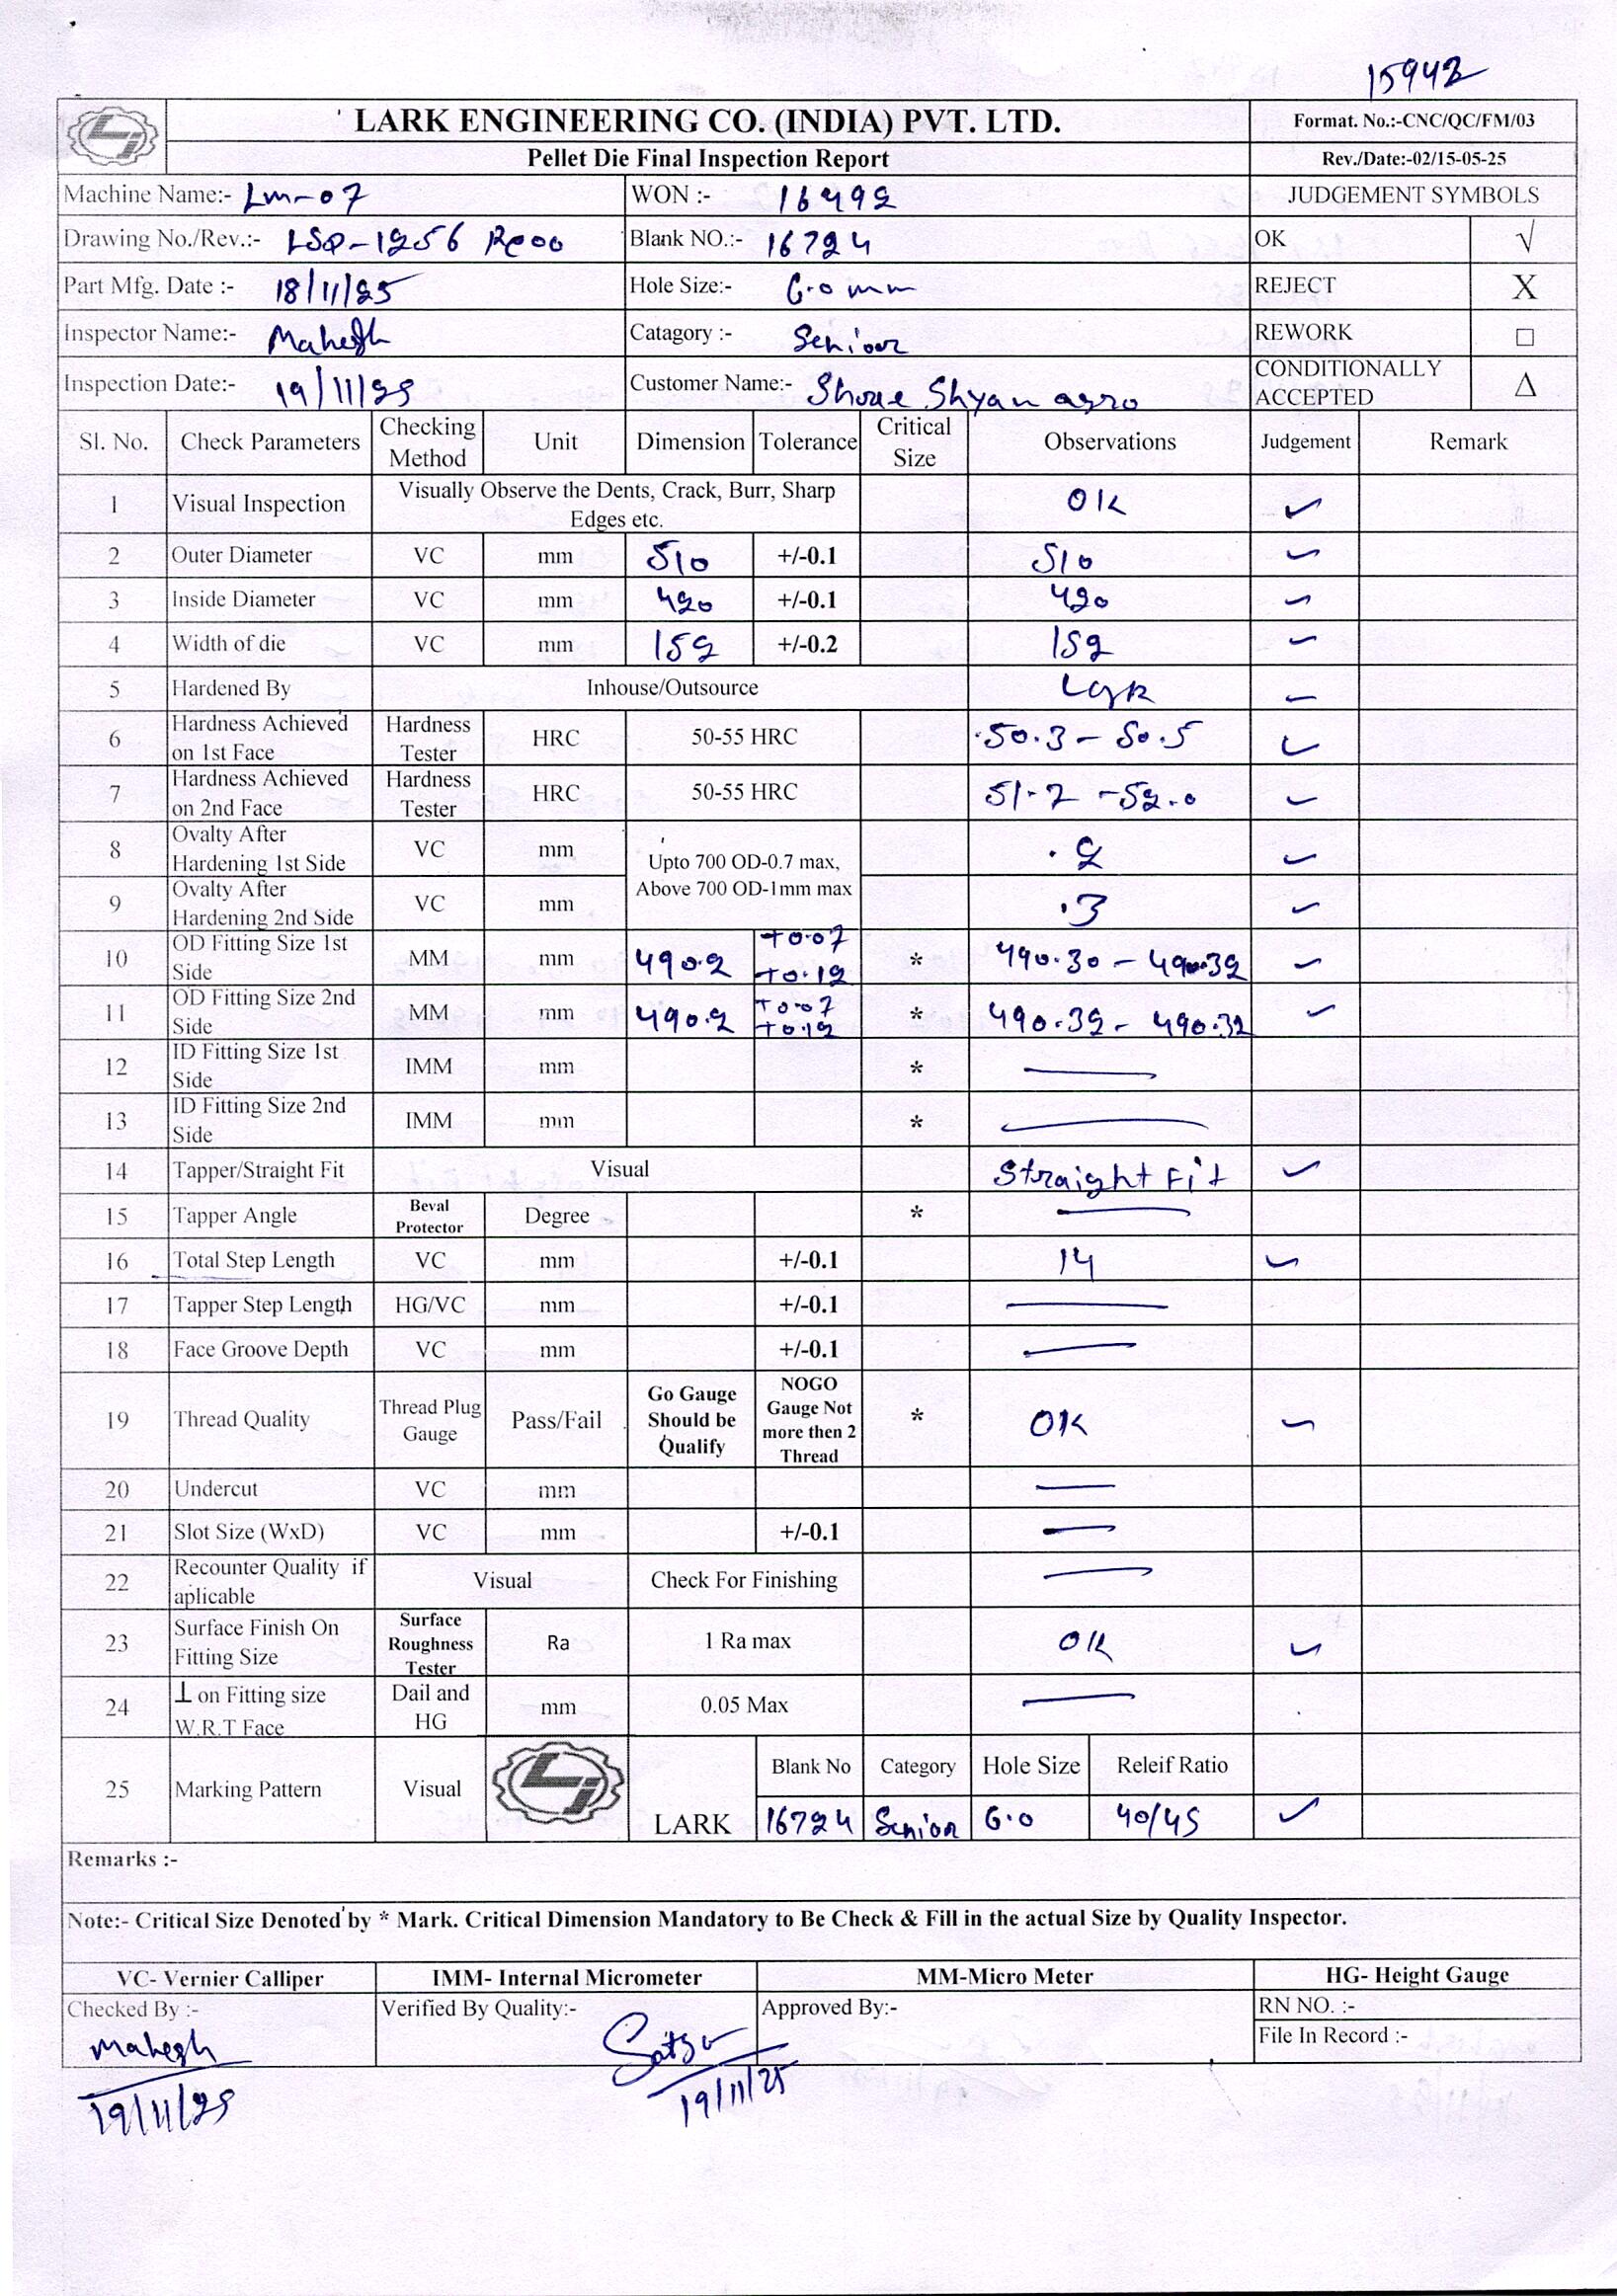 15942
LARK ENGINEERING CO. (INDIA) PVT. LTD.
Format. No.:-CNC/QC/FM/03
Pellet Die Final Inspection Report
Rev./Date:-02/15-05-25
Machine Name:- Lm-07 WON :- 16492 JUDGEMENT SYMBOLS
Drawing No./Rev.:- LSP-1256 Re00 Blank NO.:- 16724 OK √
Part Mfg. Date :- 18/11/25 Hole Size:- 6.0 mm REJECT X
Inspector Name:- Mahesh Catagory :- Senior REWORK □
Inspection Date:- 19/11/25 Customer Name:- Shree Shyam agro CONDITIONALLY ACCEPTED Δ
Sl. No. Check Parameters Checking Method Unit Dimension Tolerance Critical Size Observations Judgement Remark
1 Visual Inspection Visually Observe the Dents, Crack, Burr, Sharp Edges etc. OK ✓
2 Outer Diameter VC mm 510 +/-0.1 510 ✓
3 Inside Diameter VC mm 420 +/-0.1 420 ✓
4 Width of die VC mm 152 +/-0.2 152 ✓
5 Hardened By Inhouse/Outsource Lark ✓
6 Hardness Achieved on 1st Face Hardness Tester HRC 50-55 HRC 50.3 - 50.5 ✓
7 Hardness Achieved on 2nd Face Hardness Tester HRC 50-55 HRC 51.7 - 52.0 ✓
8 Ovalty After Hardening 1st Side VC mm Upto 700 OD-0.7 max, Above 700 OD-1mm max .2 ✓
9 Ovalty After Hardening 2nd Side VC mm .3 ✓
10 OD Fitting Size 1st Side MM mm 490.2 +0.07 +0.12 * 490.30 - 490.32 ✓
11 OD Fitting Size 2nd Side MM mm 490.2 +0.07 +0.12 * 490.32 - 490.32 ✓
12 ID Fitting Size 1st Side IMM mm * —
13 ID Fitting Size 2nd Side IMM mm * —
14 Tapper/Straight Fit Visual Straight Fit ✓
15 Tapper Angle Beval Protector Degree * —
16 Total Step Length VC mm +/-0.1 14 ✓
17 Tapper Step Length HG/VC mm +/-0.1 —
18 Face Groove Depth VC mm +/-0.1 —
19 Thread Quality Thread Plug Gauge Pass/Fail Go Gauge Should be Qualify NOGO Gauge Not more then 2 Thread * OK ✓
20 Undercut VC mm —
21 Slot Size (WxD) VC mm +/-0.1 —
22 Recounter Quality if aplicable Visual Check For Finishing —
23 Surface Finish On Fitting Size Surface Roughness Tester Ra 1 Ra max OK ✓
24 ⊥ on Fitting size W.R.T Face Dail and HG mm 0.05 Max —
25 Marking Pattern Visual LARK Blank No Category Hole Size Releif Ratio
16724 Senior 6.0 40/45 ✓
Remarks :-
Note:- Critical Size Denoted by * Mark. Critical Dimension Mandatory to Be Check & Fill in the actual Size by Quality Inspector.
VC- Vernier Calliper IMM- Internal Micrometer MM-Micro Meter HG- Height Gauge
Checked By :- Verified By Quality:- Approved By:- RN NO. :-
File In Record :-
Mahesh
19/11/25
19/11/25